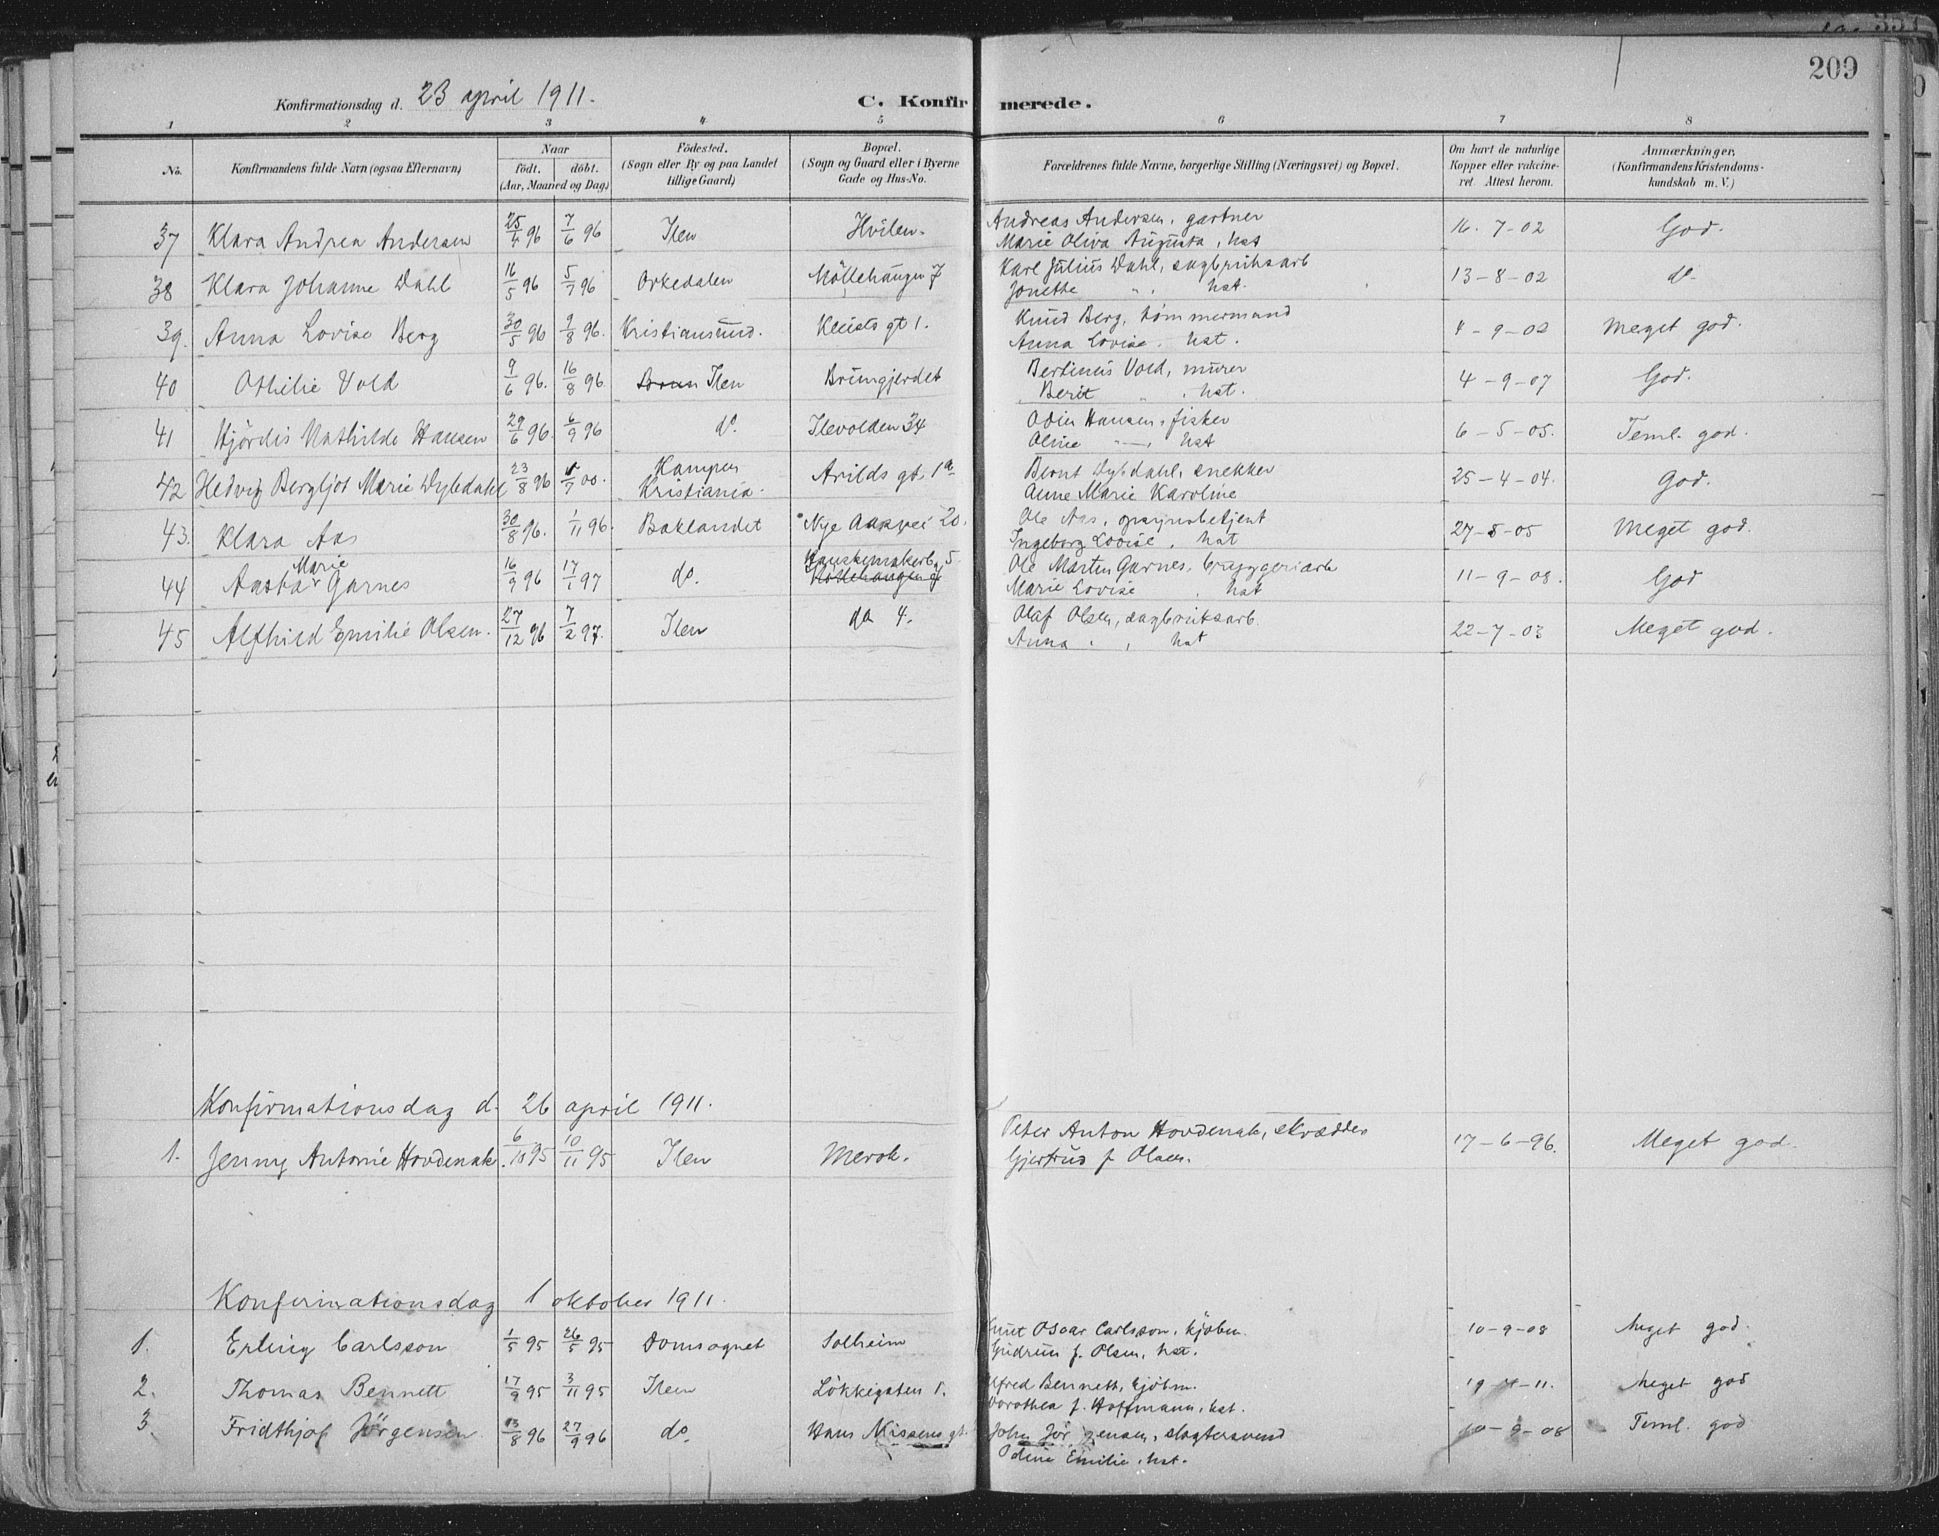 209
Konfirmationsdag d. 23 april 1911.
C. Konfirmerede.
1 2 3 4 5 6 7 8
No. Konfirmandens fulde Navn (ogsaa Efternavn) Naar födt. döbt. (Aar, Maaned og Dag) Födested. (Sogn eller By og paa Landet tillige Gaard) Bopæl. (Sogn og Gaard eller i Byerne Gade og Hus-No. Forældrenes fulde Navne, borgerlige Stilling (Næringsvei) og Bopæl. Om havt de naturlige Kopper eller vakcineret. Attest herom. Anmærkninger. (Konfirmandens Kristendomskundskab m. V.)
37 Klara Andrea Andersen 25/4 96 7/6 96 Ilen Hvilen. Andreas Andersen, gartner 16-7-02 God.
Marie Oliva Augusta, hst
38 Klara Johanne Dahl 16/5 96 5/7 96 Orkedalen Möllehaugen 7 Karl Julius Dahl, sagbruksarb 13-8-02 do.
Jonette " , hst.
39. Anna Lovise Berg 30/5 96 9/8 96. Kristiansund. gt 1. Knud Berg, tømmermand 4-9-02 Meget god.
Anna Lovise. hst.
40 Othilie Vold 9/6 96. 16/8 96 Ilen Brungjerdet Bertineus Vold, murer 4-9-07 God.
Berit " , hst.
41 Hjördis Mathilde Hansen 29/6 96. 6/9 96 do. Ilevolden 34 Odin Hansen, fisker 6-5-05. Teml. god.
Oline " , hst
42 Hedvig Bergljot Marie Dybdahl 23/8 96 /7 00. Kampen Kristiania. Arilds gt. 1a Bernt Dybdahl, snekker 25-4-04. God.
Anne Marie Karoline
43. Klara Aas 30/8 96. 1/11 96. Baklandet Nye 20. Ole Aas, opsynsbetjent 27-5-05 Meget god.
Ingeborg Lovise, hst
44 Aasta Marie Garnes 16/9 96 17/1 97 do. 5. Möllehaugen Ole Martin Garnes, bryggeriarb 11-9-08. God
Marie Lovise , hst
45 Alfhild Emilie Olsen. 27/12 96 7/2 97. Ilen do 4. Olaf Olsen, sagbruksarb. 22-7-03 Meget god.
Anna " , hst
Konfirmationsdag d. 26 april 1911.
1. Jenny Antonie Hovdenak. 6/10 95 10/11 95 Ilen Merok. Peter Anton Hovdenak, skrædder 17-6-96. Meget god.
Gjertrud f. Olsen.
Konfirmationsdag 1 oktober 1911.
1. Erling Carlsson 1/5 95 26/5 95 Domsognet Solheim Oscar Carlsson, kjöbm. 10-9-08 Meget god.
Gudrun f. Olsen, hst.
2. Thomas Bennett 17/9 95 3/11 95 Ilen Lökkegaten 1. Alfred Bennett, kjöbm. 19-4-11. Meget god
Dorothea f. Hoffmann, hst.
3 Fridthjof Jörgensen. 13/8 96 27/9 96 do. Hans Nissens gt. John Jörgensen, slagtersvend 10-9-08 Teml. god
Odine Emilie, hst.